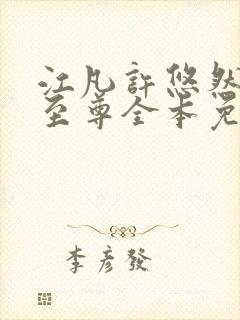 江凡許悠然
至尊全本免
李彦發